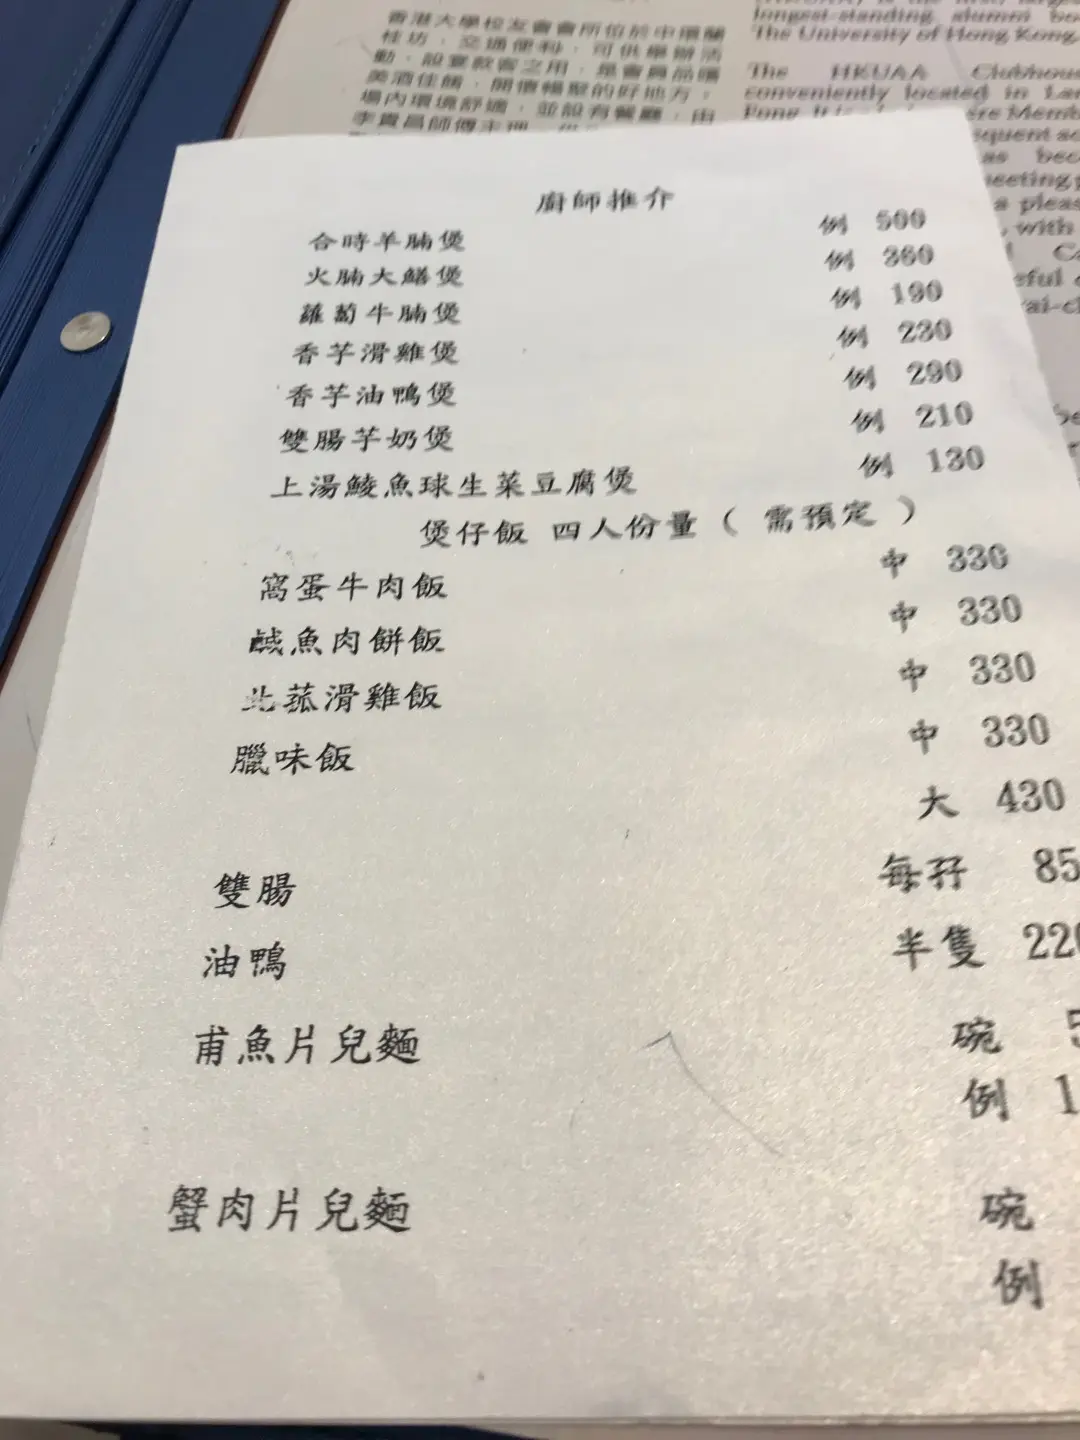 香港大學校友會會所位於中環蘭
桂坊，交通便利，可供舉辦活
動，設宴款客之用，是會員品嚐
美酒佳餚，開懷暢聚的好地方，
場內環境舒適，並設有餐廳，由
李貴昌師傅主理
longest-standing alumni
The University of Hong Kong
The HKUAA Clubhouse
conveniently located in
廚師推介
合時羊腩煲 例 500
火腩大鱔煲 例 360
蘿蔔牛腩煲 例 190
香芋滑雞煲 例 230
香芋油鴨煲 例 290
雙腸芋奶煲 例 210
上湯鯪魚球生菜豆腐煲 例 130
煲仔飯 四人份量（ 需預定 ）
窩蛋牛肉飯 中 330
鹹魚肉餅飯 中 330
北菰滑雞飯 中 330
臘味飯 中 330
大 430
雙腸 每孖 85
油鴨 半隻 220
甫魚片兒麵 碗
例
蟹肉片兒麵 碗
例